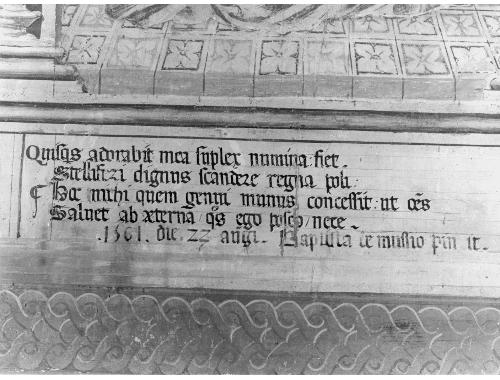 Quisqs adorabit mea suplex numina: fiet.
Stelliferi dignus scandere regna poli:
Hoc mihi quem genui munus concessit: ut oēs
Saluet ab xterna qs ego posco, nece.
.1501. die. 22 augi. Baptista de mussio pin it.